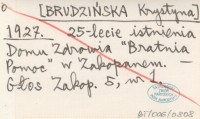 [BRUDZIŃSKA Krystyna]
1927. 25-lecie istnienia
Domu Zdrowia "Bratnia
Pomoc" w Zakopanem. —
Głos Zakop. 5, nr 1.
BT/006/0808